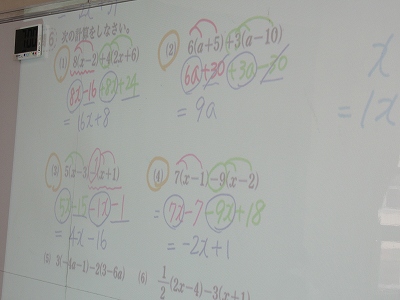 6: 次の計算をしなさい。
(1) 8(x-2)+4(2x+6)
8x-16+8x+24
= 16x+8
(2) 6(a+5)+3(a-10)
6a+30+3a-30
= 9a
x
= 1x
(3) 5(x-3)-(x+1)
5x-15-1x-1
= 4x-16
(4) 7(x-1)-9(x-2)
= 7x-7-9x+18
= -2x+11
(5) 3(-4a-1)-2(3-6a)
(6) 1/2(2x-4)-3(x+1)